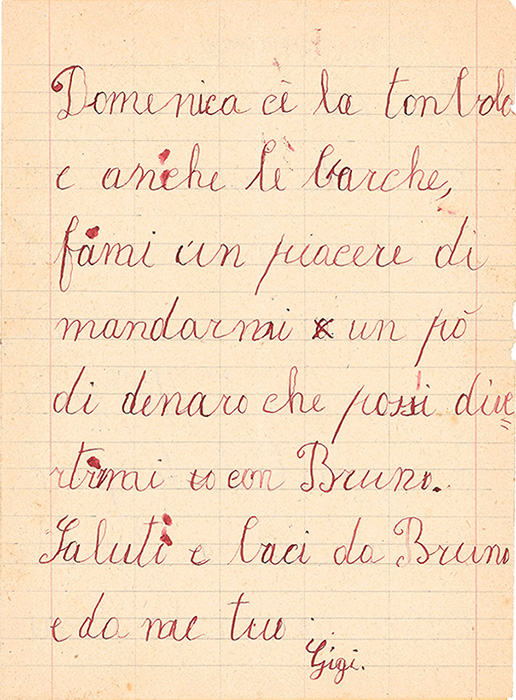 Domenica cè la tonbola
e anche le barche,
fami un piacere di
mandarmi un pò
di denaro che possi dive
rtirmi con Bruno.
Saluti e baci da Bruno
e da me tuo
Gigi.